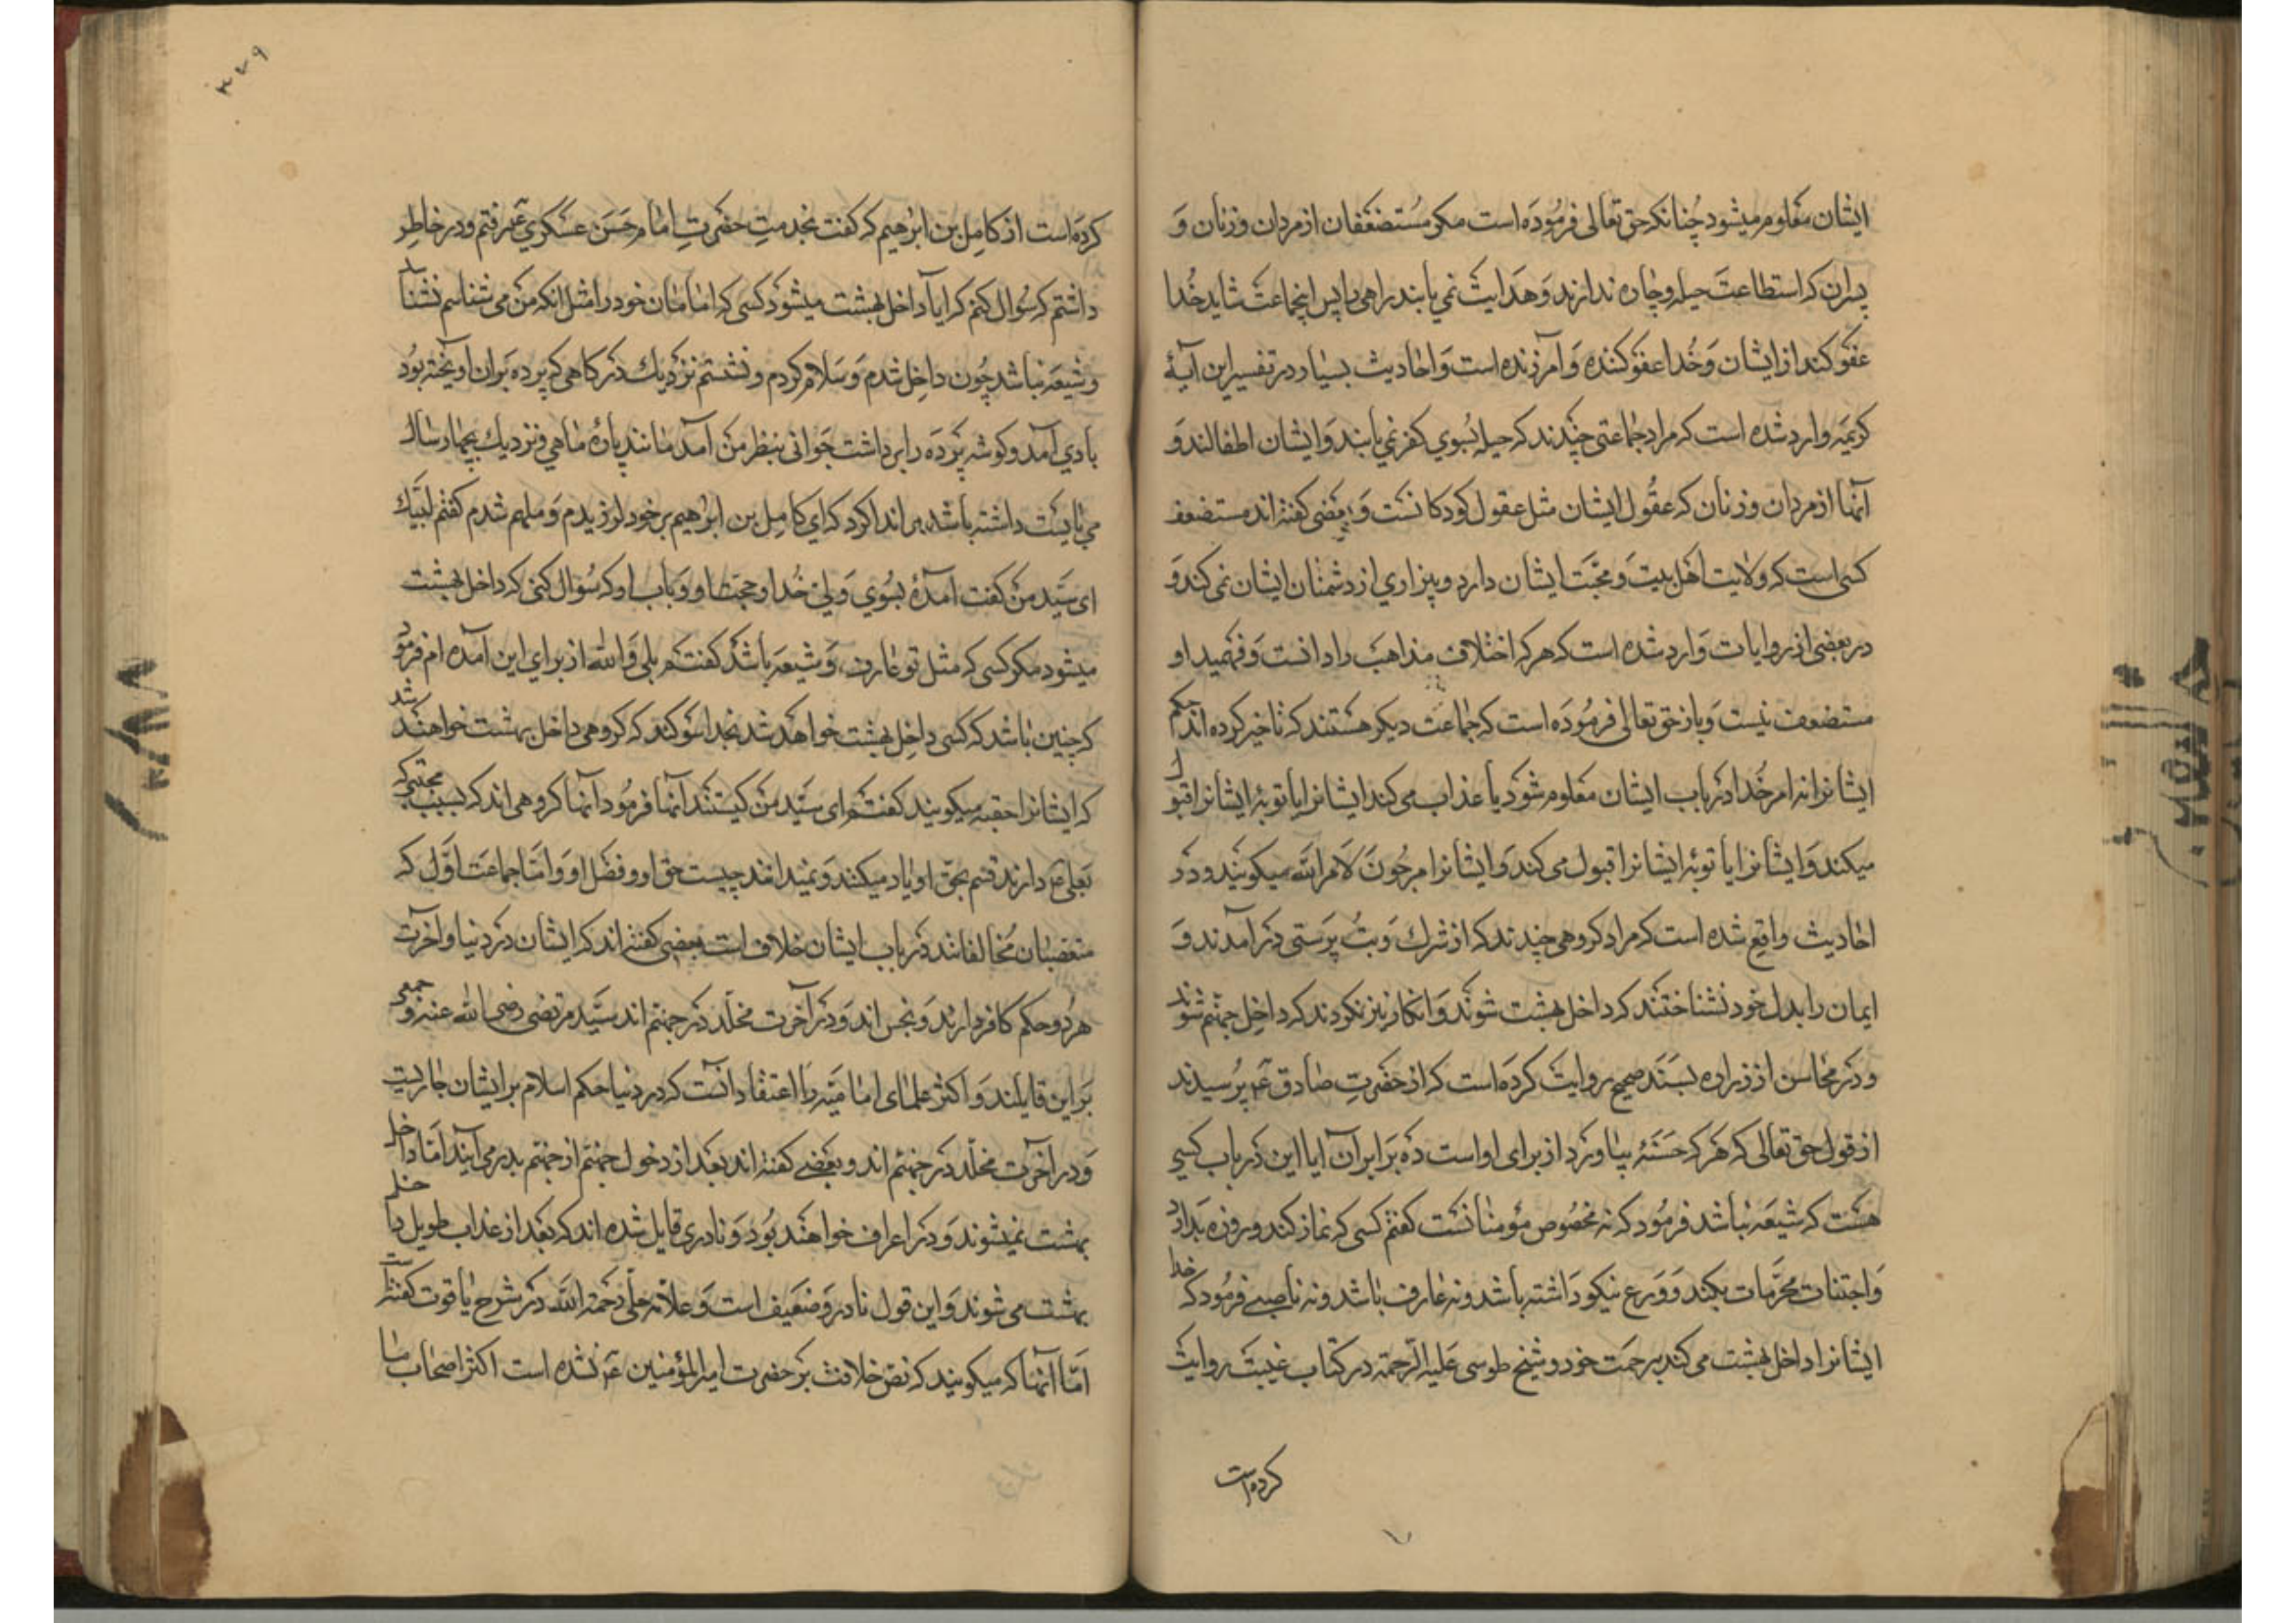 ایشان معلوم میشود چنانکه حق تعالی فرموده است مکر مستضعفان از مردان و زنان و
پسران که استطاعت حیله و چاره ندارند و هدایت نمی یابند راهی را پس اینجماعت شاید خدا
عفو کند از ایشان و خدا عفو کننده و آمرزنده است و احادیث بسیار در تفسیر این آیهٔ
کریمه وارد شده است که مراد جماعتی چندند که حیله بسوی کفر نمی یابند و ایشان اطفالند و
آنها از مردان و زنان که عقول ایشان مثل عقول کودکانست و بعضی کفته اند مستضعف
کسی است که ولایت اهل بیت و محبت ایشان دارد و بیزاری از دشمنان ایشان نمی کند و
در بعضی از روایات وارد شده است که هر که اختلاف مذاهب را دانست و فهمید او
مستضعف نیست و باز حق تعالی فرموده است که جماعت دیکر هستند که تاخیر کرده اند حکم
ایشانرا تا امر خدا در باب ایشان معلوم شود یا عذاب می کند ایشانرا یا توبهٔ ایشانرا قبول
میکند و ایشانرا یا توبهٔ ایشانرا قبول می کند و ایشانرا مرجون لامر الله میکویند و در
احادیث واقع شده است که مراد کروهی چندند که از شرک و بت پرستی در آمدند و
ایمان را بدل خود نشناختند که داخل بهشت شوند و انکار نیز نکردند که داخل جهنم شوند
و در محاسن از زراره بسند صحیح روایت کرده است که از حضرت صادق ع پرسیدند
از قول حق تعالی که هر که حسنهٔ بیاورد از برای او است ده برابر آن ایا این در باب کسی
هست که شیعه نباشد فرمود که نه مخصوص مؤمنانست کفتم کسی که نماز کند و روزه بدارد
و اجتناب محرمات بکند و ورع نیکو داشته باشد و نه عارف باشد و نه ناصبی فرمود که خدا
ایشانرا داخل بهشت می کند برحمت خود و شیخ طوسی علیه الرحمه در کتاب غیبت روایت
کرده است
۳۷۹
کرده است از کامل بن ابراهیم که کفت بخدمت حضرت امام حسن عسکری ع رفتم و در خاطر
داشتم که سؤال کنم که ایا داخل بهشت میشود کسی که امامان خود را مثل انکه من می شناسم نشناسد
و شیعه نباشد چون داخل شدم و سلام کردم و نشستم نزدیک درکاهی که پرده بر ان اویخته بود
بادی آمد و کوشه پرده را برداشت جوانی بنظر من آمد مانند پارهٔ ماهی و نزدیک بچهار سال
می بایست داشته باشد مرا ندا کرد که ای کامل بن ابراهیم بر خود لرزیدم و ملهم شدم کفتم لبیک
ای سید من کفت آمدهٔ بسوی ولی خدا و حجت او و باب او که سؤال کنی که داخل بهشت
میشود مکر کسی که مثل تو عارف و شیعه باشد کفتم بلی و الله از برای این آمده ام فرمود
که چنین باشد که کسی داخل بهشت خواهد شد بخدا سوکند که کروهی داخل بهشت خواهند شد
که ایشانرا حقیه میکویند کفتم ای سید من کیستند آنها فرمود آنها کروهی اند که بسبب محبتی که
بعلی ع دارند قسم بحق او یاد میکنند و نمیدانند چیست حق او و فضل او و اما جماعت اول که
متعصبان مخالفانند در باب ایشان خلاف است بعضی کفته اند که ایشان در دنیا و آخرت
هر دو حکم کافر دارند و نجس اند و در آخرت مخلد در جهنم اند سید مرتضی رضی الله عنه و جمعی
بر این قایلند و اکثر علمای امامیه را اعتقاد آنست که در دنیا حکم اسلام بر ایشان جاریست
و در آخرت مخلد در جهنم اند و بعضی کفته اند بعد از دخول جهنم از جهنم بدر می آیند اما داخل
بهشت نمیشوند و در اعراف خواهند بود و نادری قایل شده اند که بعد از عذاب طویل داخل
بهشت می شوند و این قول نادر و ضعیف است و علامه حلی رحمة الله در شرح یاقوت کفته است
اما آنها که میکویند که نص خلافت بر حضرت امیر المؤمنین ع نشده است اکثر اصحاب ما